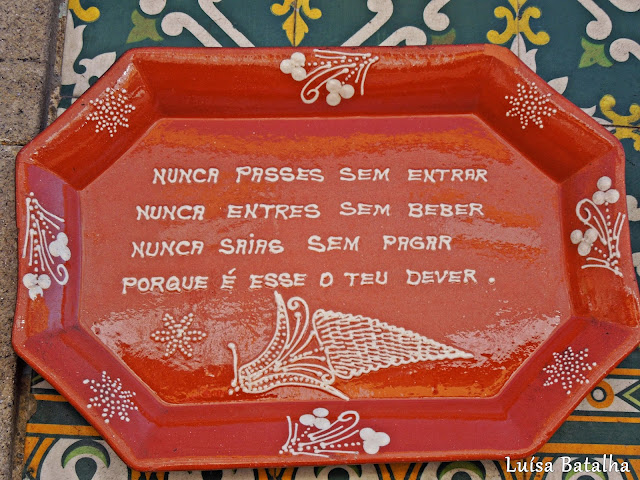 NUNCA PASSES SEM ENTRAR
NUNCA ENTRES SEM BEBER
NUNCA SAIAS SEM PAGAR
PORQUE É ESSE O TEU DEVER.
Luísa Batalha